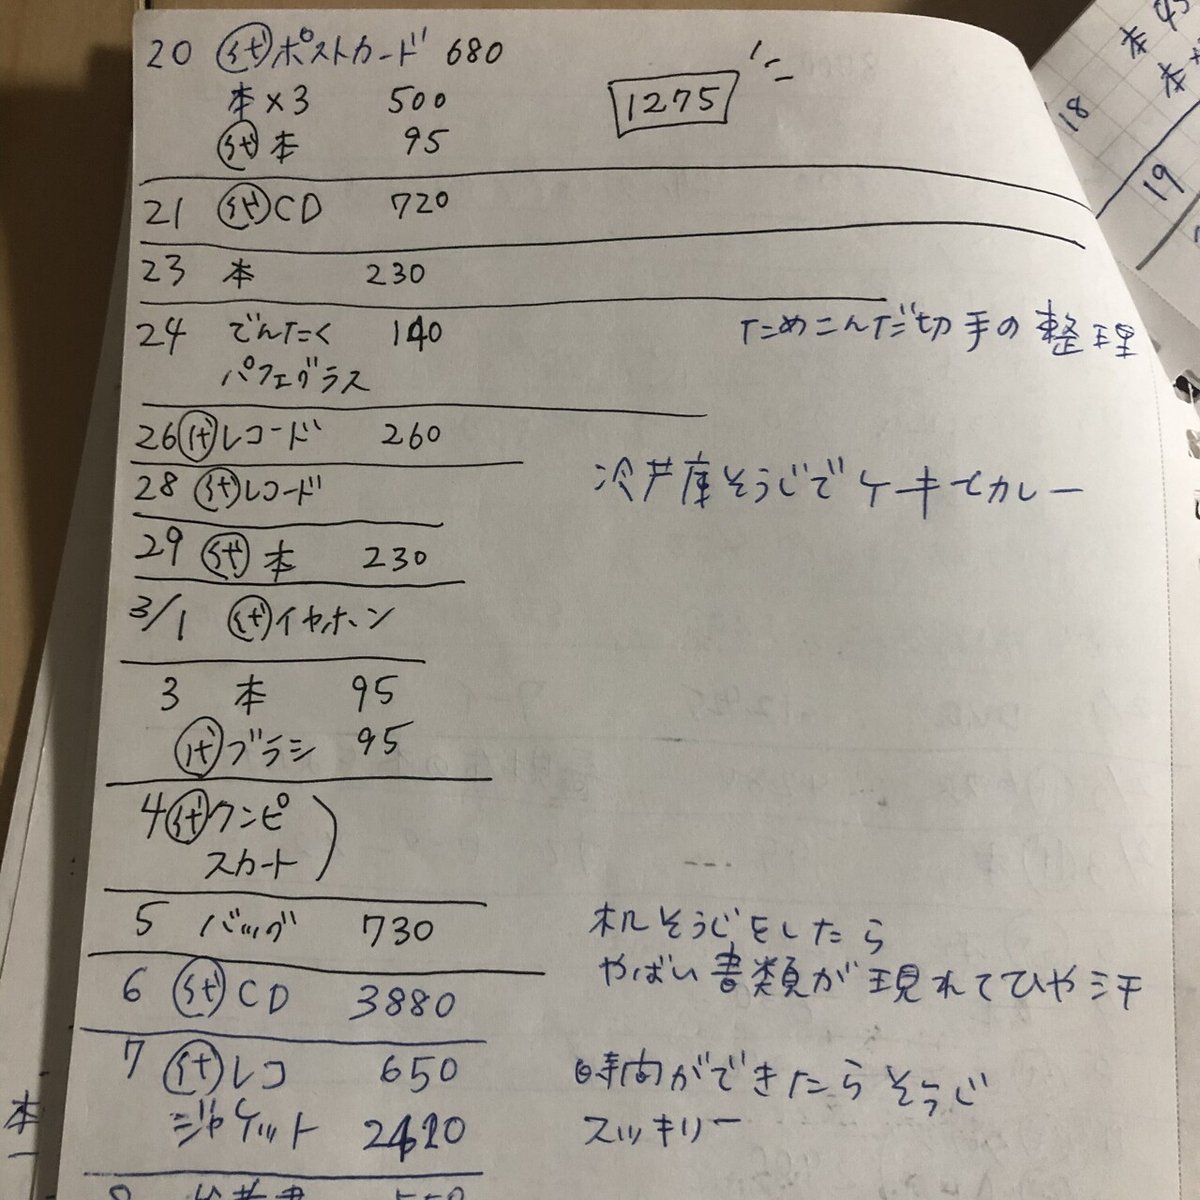 20 代 ポストカード 680
本×3 500
代 本 95
1275
21 代 CD 720
23 本 230
24 でんたく 140
パフェグラス
ためこんだ切手の整理
26 代 レコード 260
28 代 レコード
冷戸庫そうじでケーキでカレー
29 代 本 230
3/1 代 イヤホン
3 本 95
代 ブラシ 95
4 代 ワンピ
スカート
5 バッグ 730
机そうじをしたら
やばい書類が現れてひや汗
6 代 CD 3880
7 代 レコ 650
ジャケット
時間ができたらそうじ
スッキリー
本
18
19